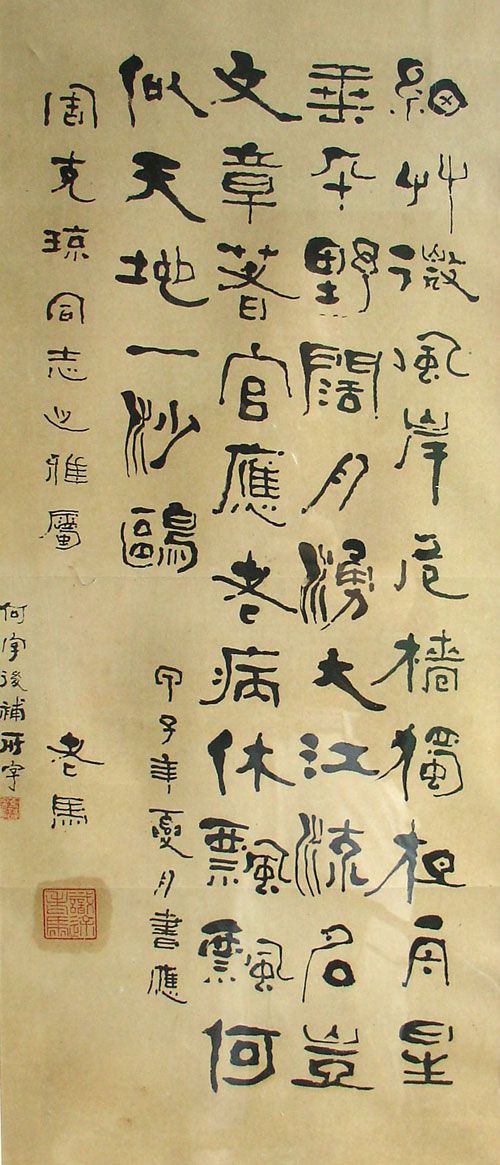 細艸微風岸危檣獨夜舟星
垂平野闊月湧大江流名豈
文章著官應老病休飄飄何
似天地一沙鷗
甲子年夏月書應
周克琼同志之雅屬
老馬
識途老馬
何字後補所字